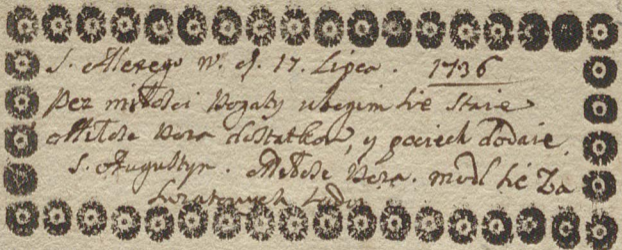 S. Alexego W. d. 17. Lipca. 1736
Bez miłości Bogaty ubogim się staie
Miłość Boża dostatkow, y pociech dodaie.
S. Augustyn. Miłość Boża. modl się Za